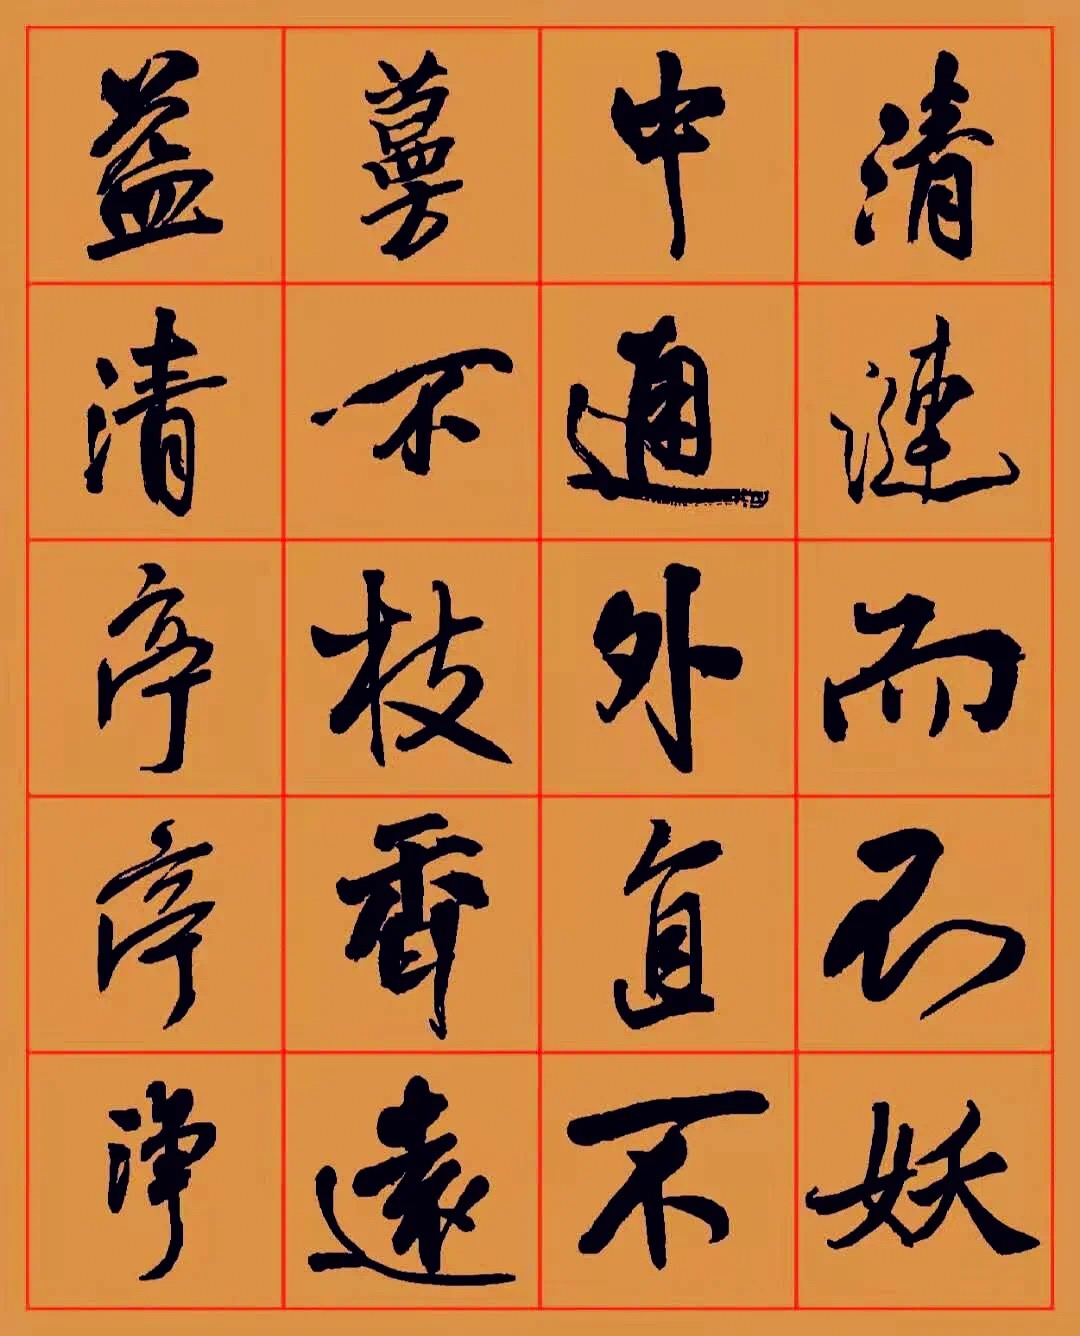 清漣而不妖
中通外直不
蔓不枝香遠
益清亭亭淨